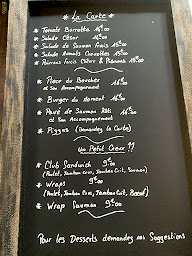 * La Carte *
* Tomate Burratta 16€00
* Salade César 16€00
* Salade de Saumon frais 15€00
* Salade
* Poivrons farcis Chèvre & 15€00
* Pièce du Boucher
et Son Accompagnement
* Burger du moment 16€00
* Pavé de Saumon Rôti 16€00
et Son Accompagnement
* Pizzas (Demandez la Carte)
Un Petit Creux ??
* Club Sandwich 9€00
(Poulet, Jambon Cru, Jambon Cuit, Saumon)
* Wraps 9€00
(Poulet, Jambon Cru, Jambon Cuit, Boeuf)
* Wrap Saumon 9€00
Pour les Desserts demandez nos Suggestions